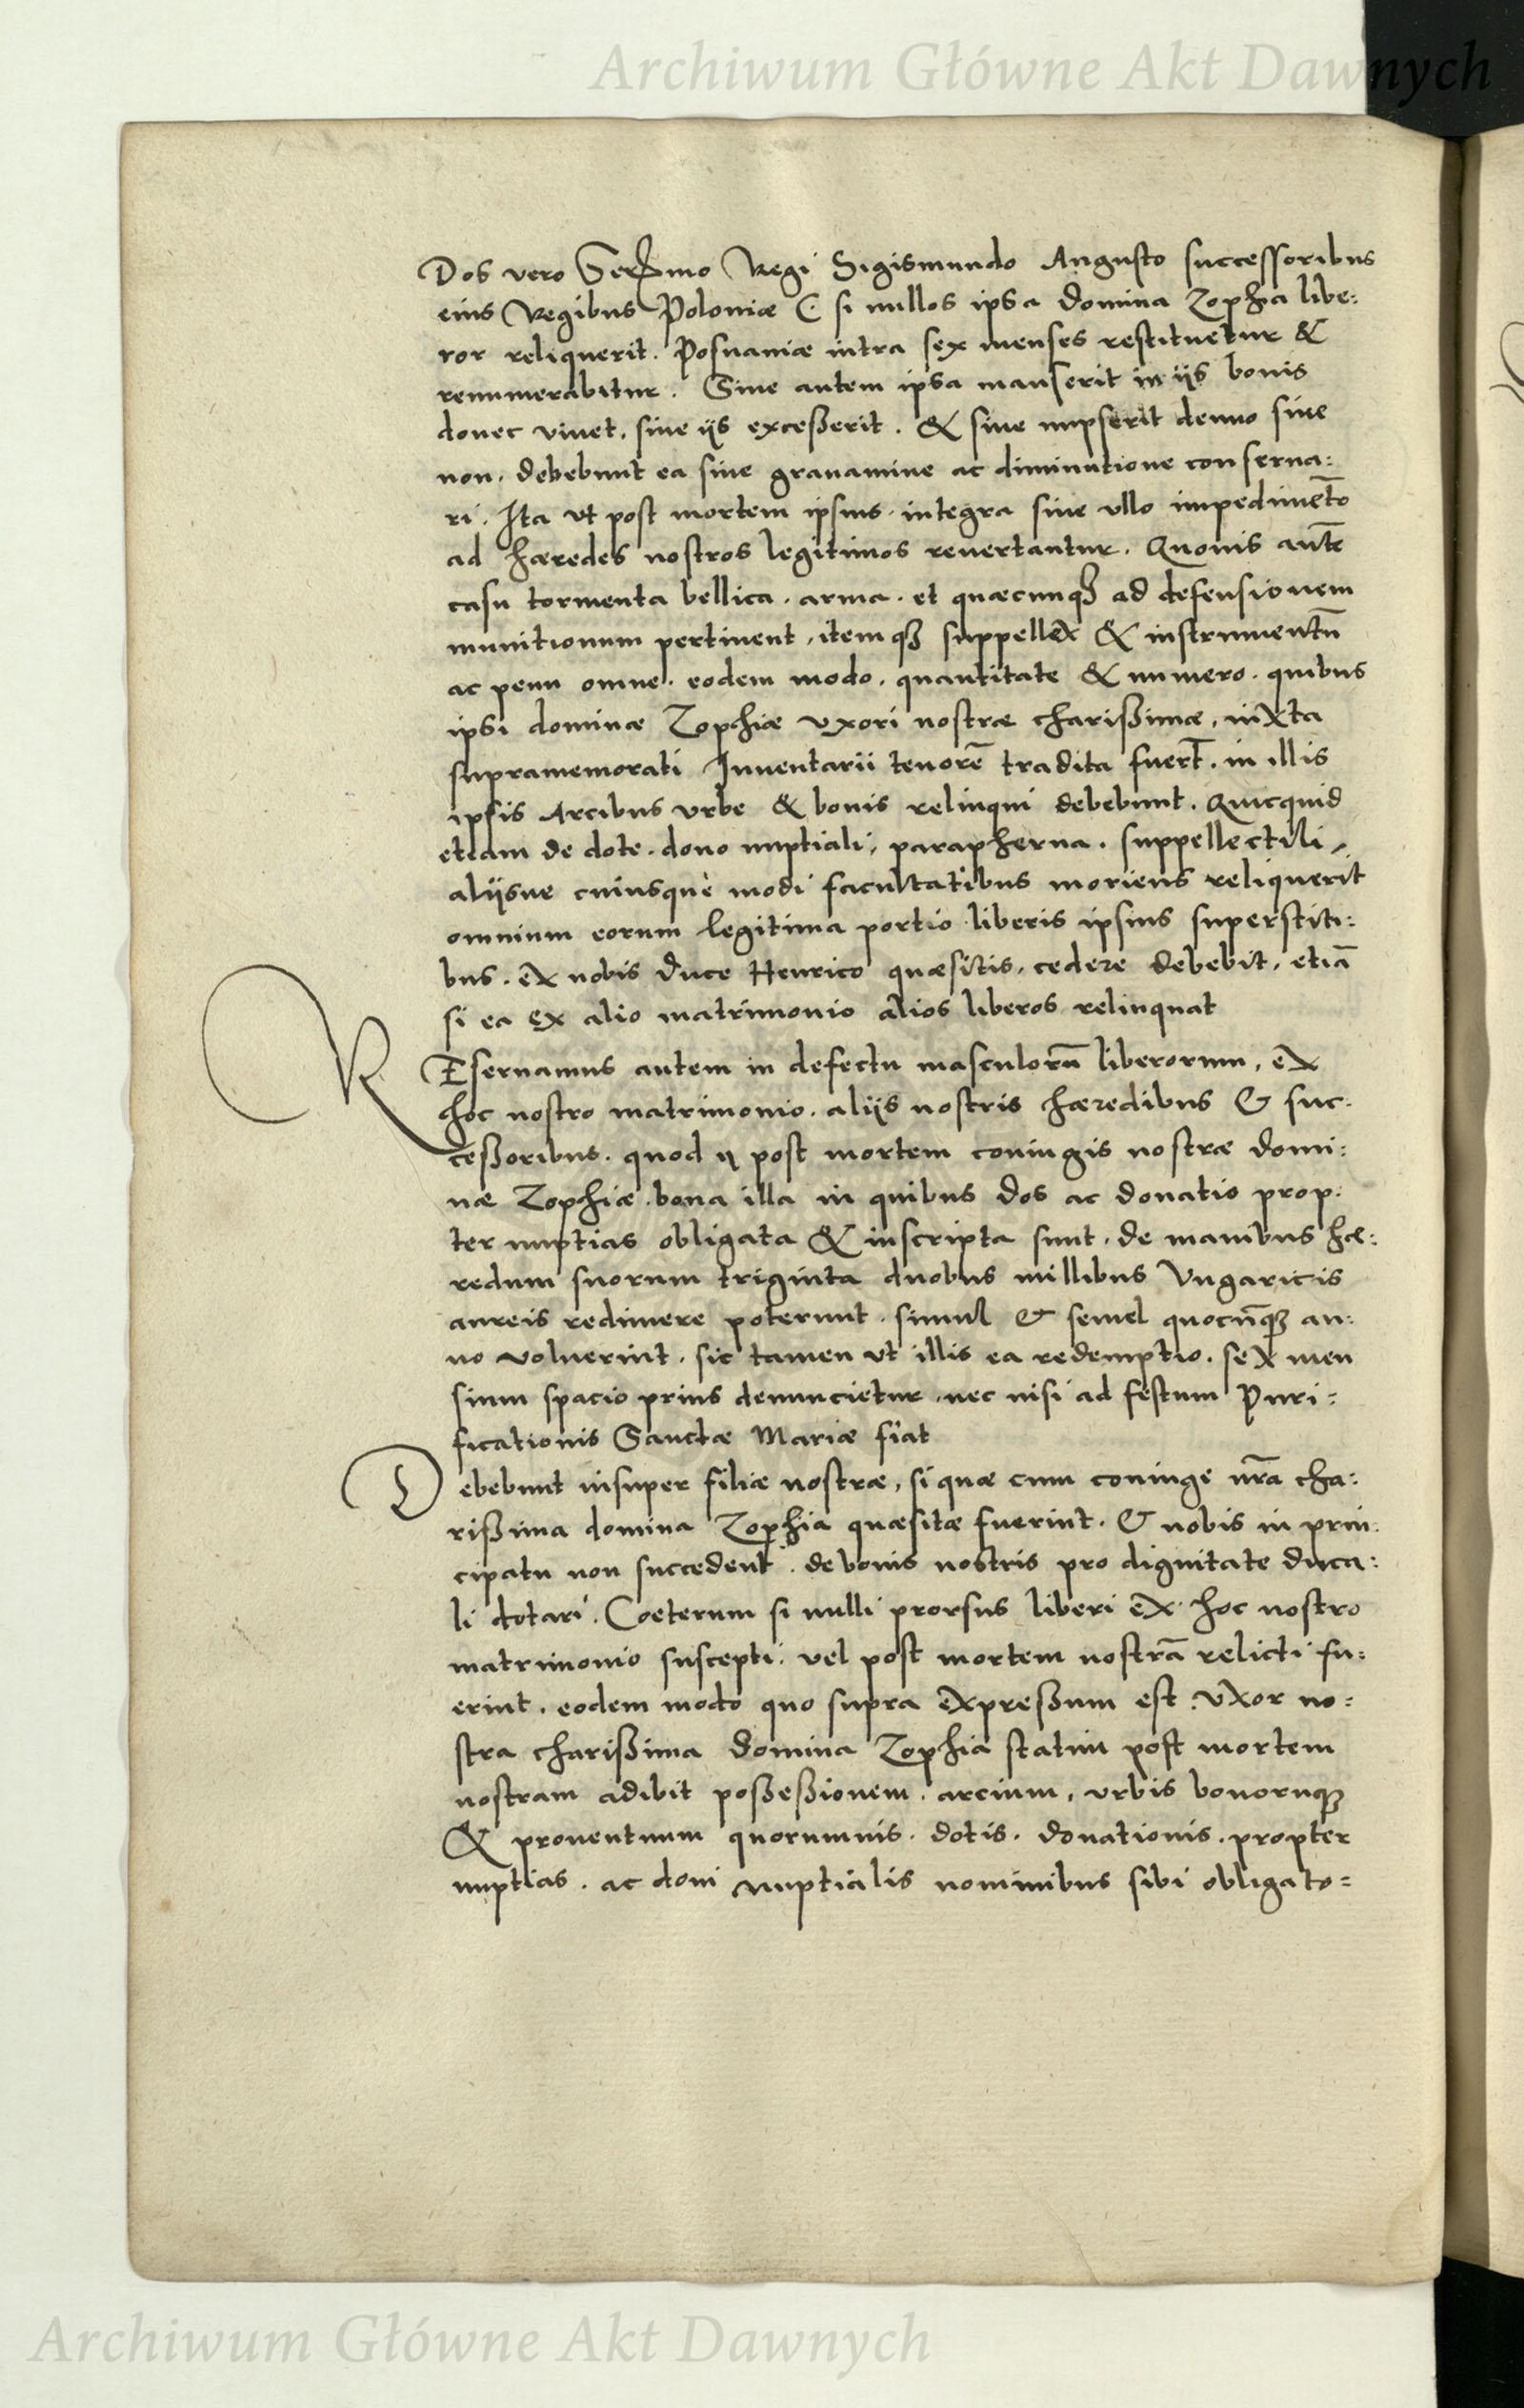 Archiwum Główne Akt Dawnych
Dos vero Serssmo Regi Sigismundo Augusto successoribus
eius Regibus Poloniæ si nullos ipsa domina Zophia libe:
ror reliquerit. Posnaniæ intra sex menses restituetur &
renumerabitur. Siue autem ipsa manserit in iis bonis
donec viuet, siue iis exceßerit. & siue nupserit denuo siue
non, debebunt ea sine grauamine ac diminutione conserua:
ri. Ita vt post mortem ipsius integra sine vllo impedimēto
ad hæredes nostros legitimos reuertantur. Quouis autē
casu tormenta bellica, arma, et quæcunqȝ ad defensionem
munitionum pertinent, itemqȝ suppellex & instrumentū
ac penu omne, eodem modo, quantitate & numero, quibus
ipsi dominæ Zophiæ vxori nostræ charißimæ, iuxta
supramemorati Inuentarii tenorē tradita fuert̄, in illis
ipsis Arcibus vrbe & bonis relinqui debebunt. Quicquid
etiam de dote, dono nuptiali, parapherna, suppellectili,
aliisue cuiusque modi facultatibus moriens reliquerit
omnium eorum legitima portio liberis ipsius superstiti:
bus, ex nobis duce Henrico quæsitis, cedere debebit, etiā
si ea ex alio matrimonio alios liberos relinquat
REseruamus autem in defectu masculorū liberorum, ex
hoc nostro matrimonio, aliis nostris hæredibus & suc:
ceßoribus, quod ii post mortem coniugis nostræ domi:
næ Zophiæ bona illa in quibus dos ac donatio prop:
ter nuptias obligata & inscripta sunt, de manibus hæ:
redum suorum triginta duobus millibus Vngaricis
aureis redimere poterunt, simul & semel quocūqȝ an:
no voluerint, sic tamen vt illis ea redemptio, sex men
sium spacio prius denuncietur, nec nisi ad festum Puri:
ficationis Sanctæ Mariæ fiat
Debebunt insuper filiæ nostræ, si quæ cum coniuge nr̄a cha:
rißima domina Zophia quæsitæ fuerint, & nobis in prin:
cipatu non succedent, de bonis nostris pro dignitate duca:
li dotari. Coeterum si nulli prorsus liberi ex hoc nostro
matrimonio suscepti, vel post mortem nostrā relicti fu:
erint, eodem modo quo supra expreßum est, vxor no:
stra charißima domina Zophia statim post mortem
nostram adibit poßeßionem, arcium, vrbis bonorūqȝ
& prouentuum quorumuis, dotis, donationis, propter
nuptias, ac doni nuptialis nominibus sibi obligato:
Archiwum Główne Akt Dawnych